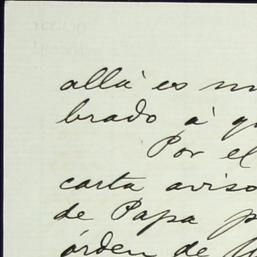 allá es
brado á
Por el
carta aviso
de Papa
órden de